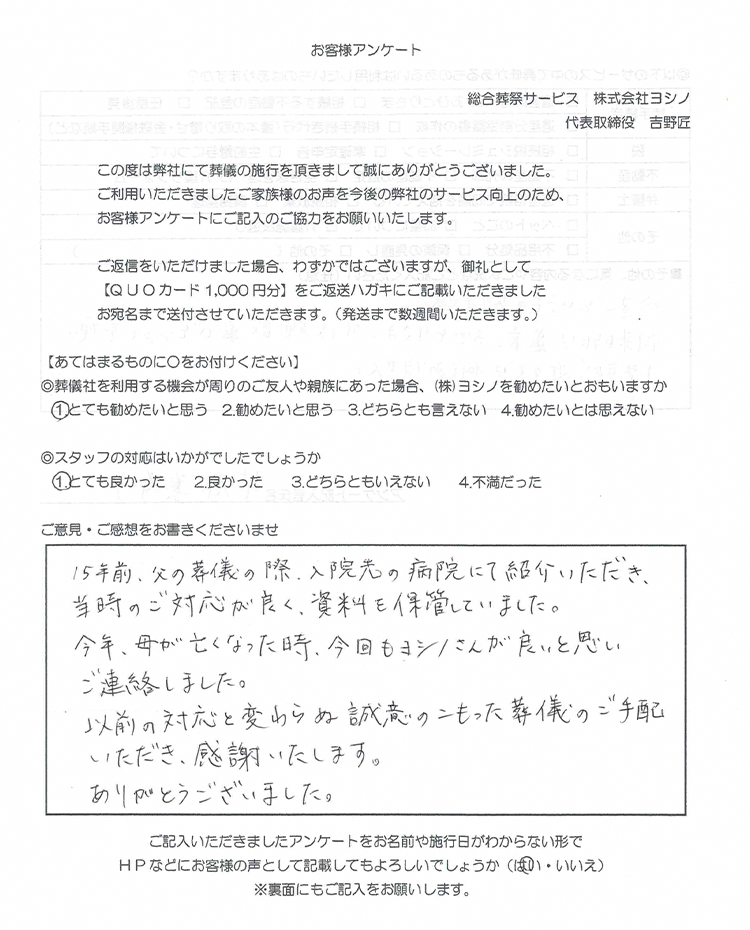 お客様アンケート
総合葬祭サービス　株式会社ヨシノ
代表取締役　吉野匠
この度は弊社にて葬儀の施行を頂きまして誠にありがとうございました。
ご利用いただきましたご家族様のお声を今後の弊社のサービス向上のため、
お客様アンケートにご記入のご協力をお願いいたします。
ご返信をいただけました場合、わずかではございますが、御礼として
【QUOカード1,000円分】をご返送ハガキにご記載いただきました
お宛名まで送付させていただきます。（発送まで数週間いただきます。）
【あてはまるものに〇をお付けください】
◎葬儀社を利用する機会が周りのご友人や親族にあった場合、(株)ヨシノを勧めたいとおもいますか
1.とても勧めたいと思う　2.勧めたいと思う　3.どちらとも言えない　4.勧めたいとは思えない
◎スタッフの対応はいかがでしたでしょうか
1.とても良かった　2.良かった　3.どちらともいえない　4.不満だった
ご意見・ご感想をお書きくださいませ
15年前、父の葬儀の際、入院先の病院にて紹介いただき、
当時のご対応が良く、資料を保管していました。
今年、母が亡くなった時、今回もヨシノさんが良いと思い
ご連絡しました。
以前の対応と変わらぬ誠意のこもった葬儀のご手配
いただき、感謝いたします。
ありがとうございました。
ご記入いただきましたアンケートをお名前や施行日がわからない形で
HPなどにお客様の声として記載してもよろしいでしょうか（はい・いいえ）
※裏面にもご記入をお願いします。